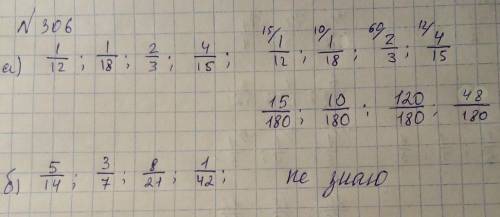 № 306
а) 1/12 ; 1/18 ; 2/3 ; 4/15 ; 15/ 1/12 ; 10/ 1/18 ; 60/ 2/3 ; 12/ 4/15
15/180 ; 10/180 ; 120/180 ; 48/180
б) 5/14 ; 3/7 ; 8/21 ; 1/42 ; не знаю